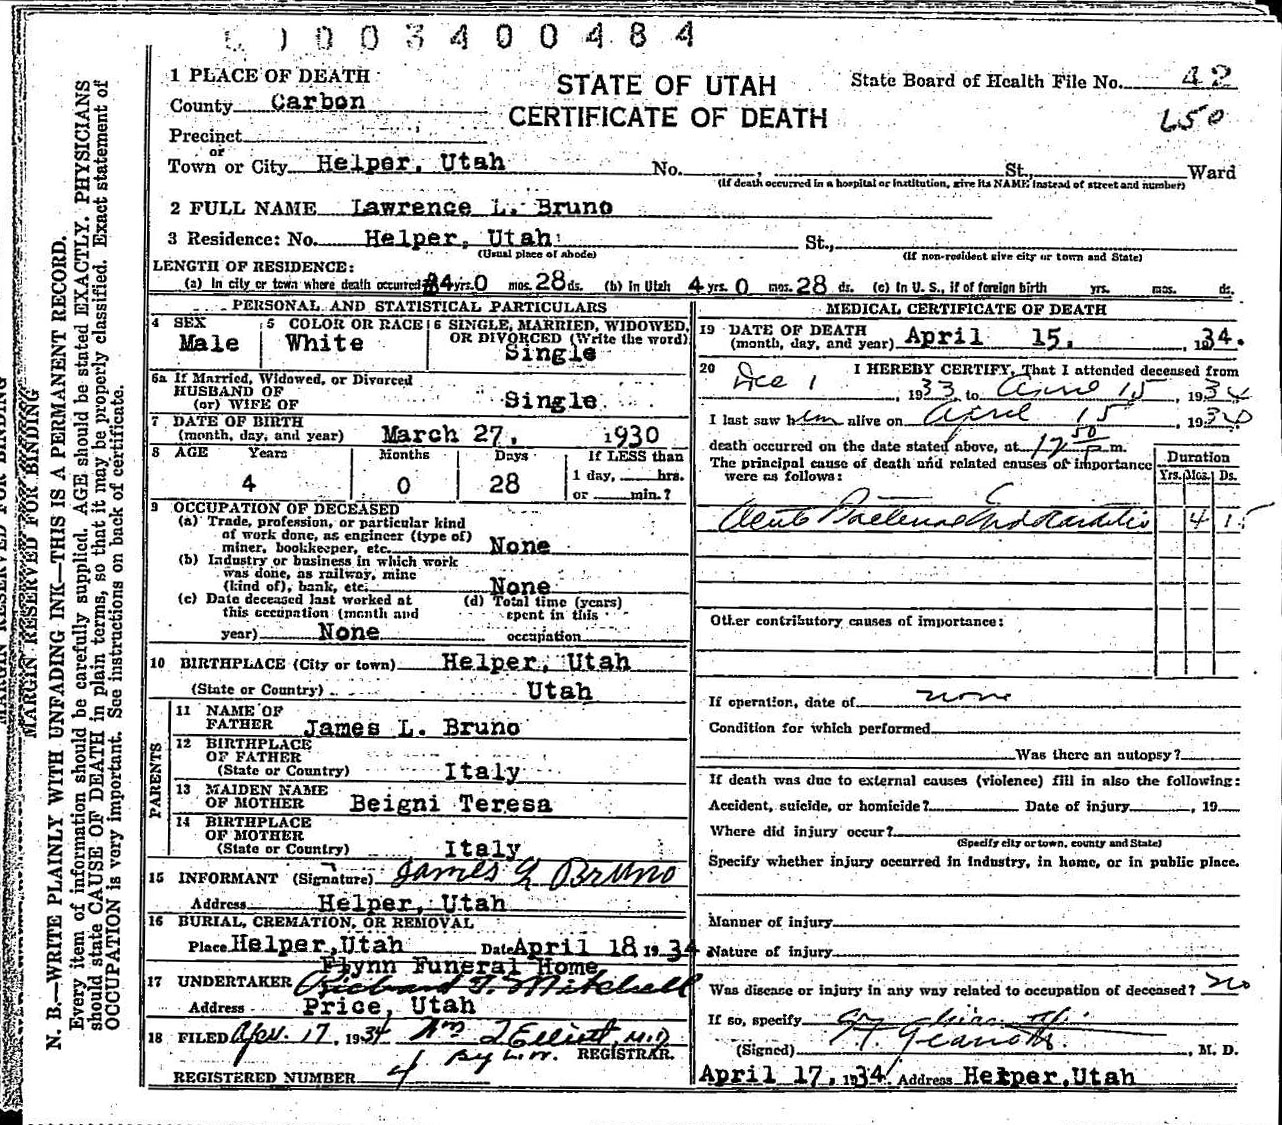 0 1 0 0 3 4 0 0 4 8 4
1 PLACE OF DEATH
STATE OF UTAH
CERTIFICATE OF DEATH
State Board of Health File No. 42
650
County Carbon
Precinct
or
Town or City Helper, Utah No. , St., Ward
(If death occurred in a hospital or institution, give its NAME instead of street and number)
2 FULL NAME Lawrence L. Bruno
3 Residence: No. Helper, Utah St.,
(Usual place of abode) (If non-resident give city or town and State)
LENGTH OF RESIDENCE:
(a) In city or town where death occurred 4 yrs. 0 mos. 28 ds. (b) In Utah 4 yrs. 0 mos. 28 ds. (c) In U. S., if of foreign birth yrs. mos. ds.
PERSONAL AND STATISTICAL PARTICULARS
4 SEX Male
5 COLOR OR RACE White
6 SINGLE, MARRIED, WIDOWED, OR DIVORCED (Write the word) Single
6a If Married, Widowed, or Divorced
HUSBAND OF
(or) WIFE OF Single
7 DATE OF BIRTH
(month, day, and year) March 27, 1930
8 AGE Years Months Days If LESS than
4 0 28 1 day, hrs.
or min.?
9 OCCUPATION OF DECEASED
(a) Trade, profession, or particular kind
of work done, as engineer (type of)
miner, bookkeeper, etc. None
(b) Industry or business in which work
was done, as railway, mine
(kind of), bank, etc. None
(c) Date deceased last worked at
this occupation (month and
year) None
(d) Total time (years)
spent in this
occupation
10 BIRTHPLACE (City or town) Helper, Utah
(State or Country) Utah
PARENTS
11 NAME OF
FATHER James L. Bruno
12 BIRTHPLACE
OF FATHER
(State or Country) Italy
13 MAIDEN NAME
OF MOTHER Beigni Teresa
14 BIRTHPLACE
OF MOTHER
(State or Country) Italy
15 INFORMANT (Signature) James L Bruno
Address Helper, Utah
16 BURIAL, CREMATION, OR REMOVAL
Place Helper, Utah Date April 18, 1934
Flynn Funeral Home
17 UNDERTAKER Richard T. Mitchell
Address Price, Utah
18 FILED Apr. 17, 1934 Wm J Elliott, M.D. REGISTRAR.
By L.W.
REGISTERED NUMBER 4
MEDICAL CERTIFICATE OF DEATH
19 DATE OF DEATH
(month, day, and year) April 15, 1934.
20 I HEREBY CERTIFY, That I attended deceased from
Dec 1, 1933, to April 15, 1934
I last saw him alive on April 15, 1934
death occurred on the date stated above, at 12 50 P m.
The principal cause of death and related causes of importance
were as follows:
Duration
Yrs. Mos. Ds.
Acute Bacterial Endocarditis 4 15
Other contributory causes of importance:
If operation, date of none
Condition for which performed
Was there an autopsy?
If death was due to external causes (violence) fill in also the following:
Accident, suicide, or homicide? Date of injury , 19
Where did injury occur?
(Specify city or town, county and State)
Specify whether injury occurred in industry, in home, or in public place.
Manner of injury
Nature of injury
Was disease or injury in any way related to occupation of deceased? no
If so, specify
(Signed) , M. D.
April 17, 1934 Address Helper, Utah
MARGIN RESERVED FOR BINDING
N. B.—WRITE PLAINLY WITH UNFADING INK—THIS IS A PERMANENT RECORD.
Every item of information should be carefully supplied. AGE should be stated EXACTLY. PHYSICIANS
should state CAUSE OF DEATH in plain terms, so that it may be properly classified. Exact statement of
OCCUPATION is very important. See instructions on back of certificate.